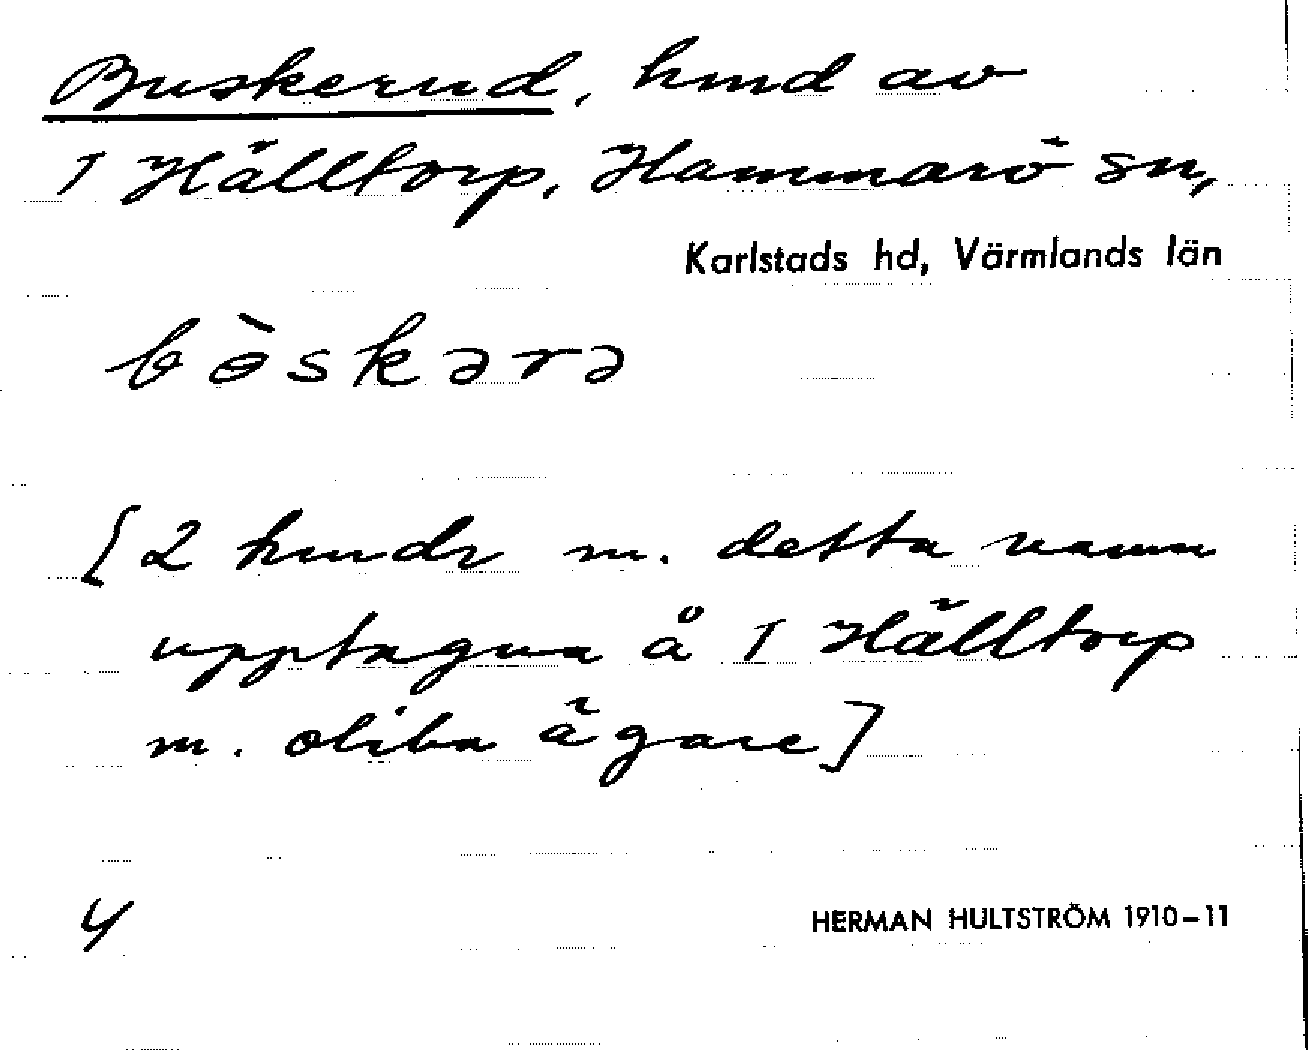 Buskerud, hmd av
1 Hälltorp, Hammarö sn,
Karlstads hd, Värmlands län
bɵ̀skərə
[2 hmdr m. detta namn
upptagna å 1 Hälltorp
m. olika ägare]
4
HERMAN HULTSTRÖM 1910–11